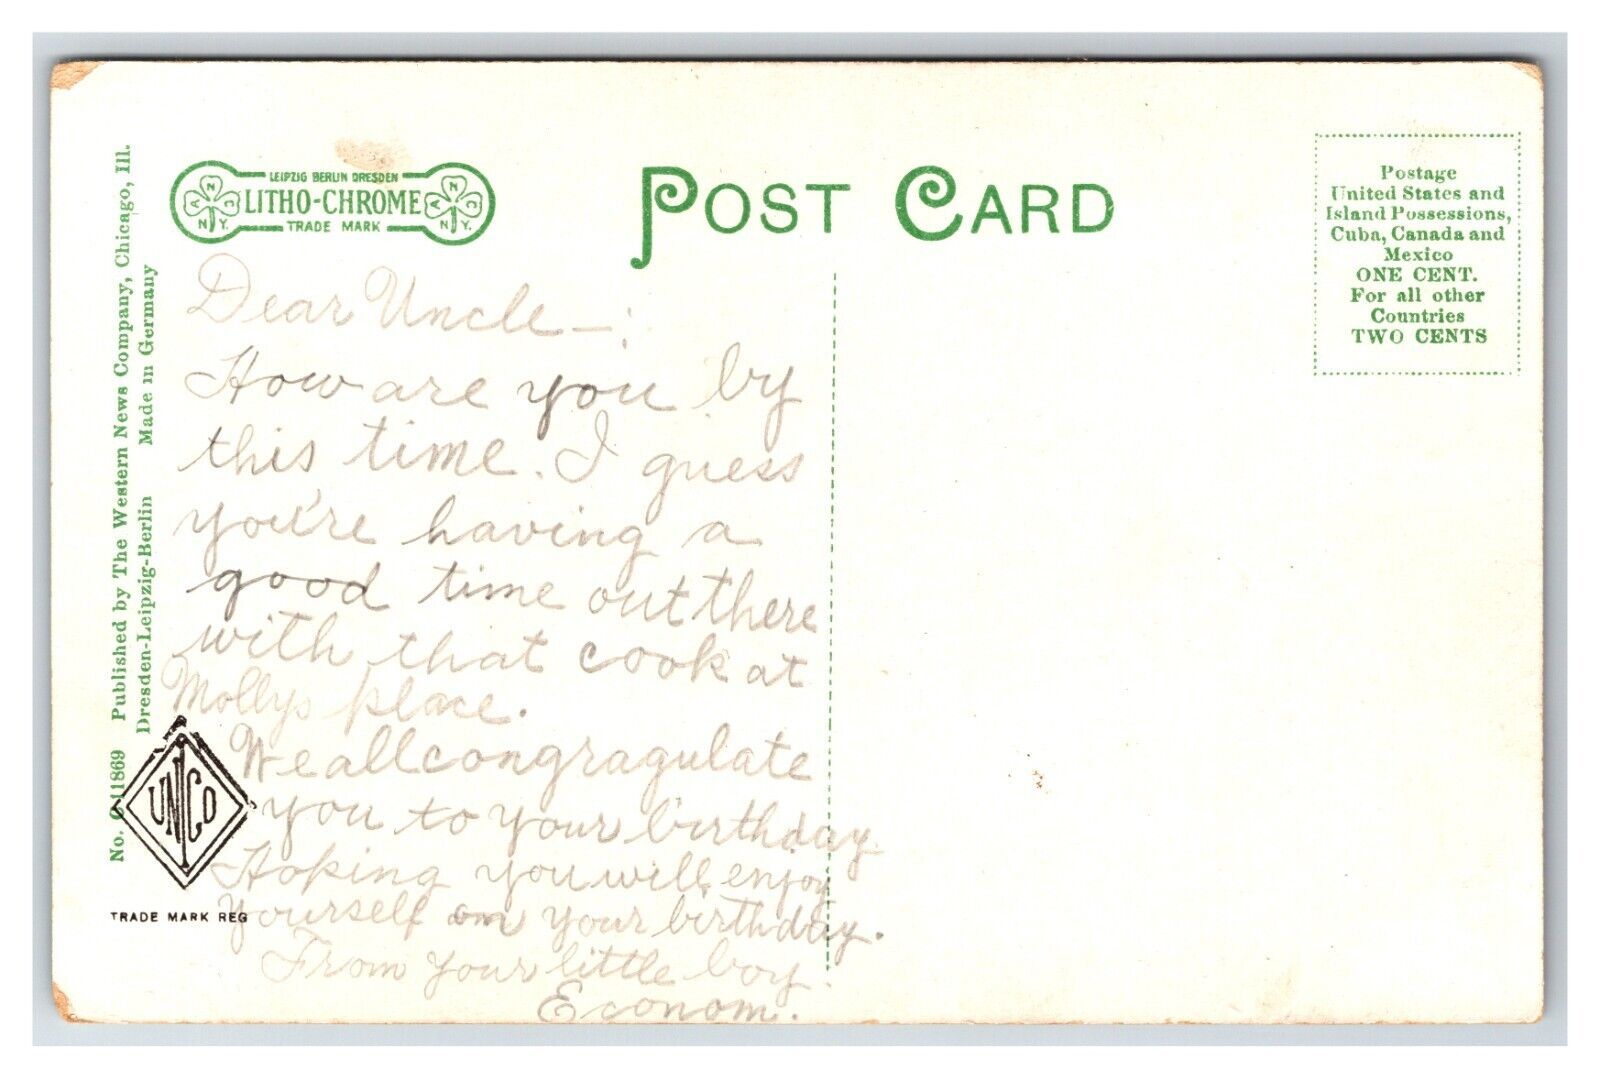 LEIPZIG BERLIN DRESDEN
LITHO-CHROME
TRADE MARK
A N C N.Y.
A N C N.Y.
POST CARD
Postage
United States and
Island Possessions,
Cuba, Canada and
Mexico
ONE CENT.
For all other
Countries
TWO CENTS
No. C 11869 Published by The Western News Company, Chicago, Ill.
Dresden-Leipzig-Berlin Made in Germany
UNICO
TRADE MARK REG
Dear Uncle—:
How are you by
this time. I guess
you're having a
good time out there
with that cook at
Mollys place.
We all congragulate
you to your birthday.
Hoping you will enjoy
yourself on your birthday.
From your little boy.
Econom.